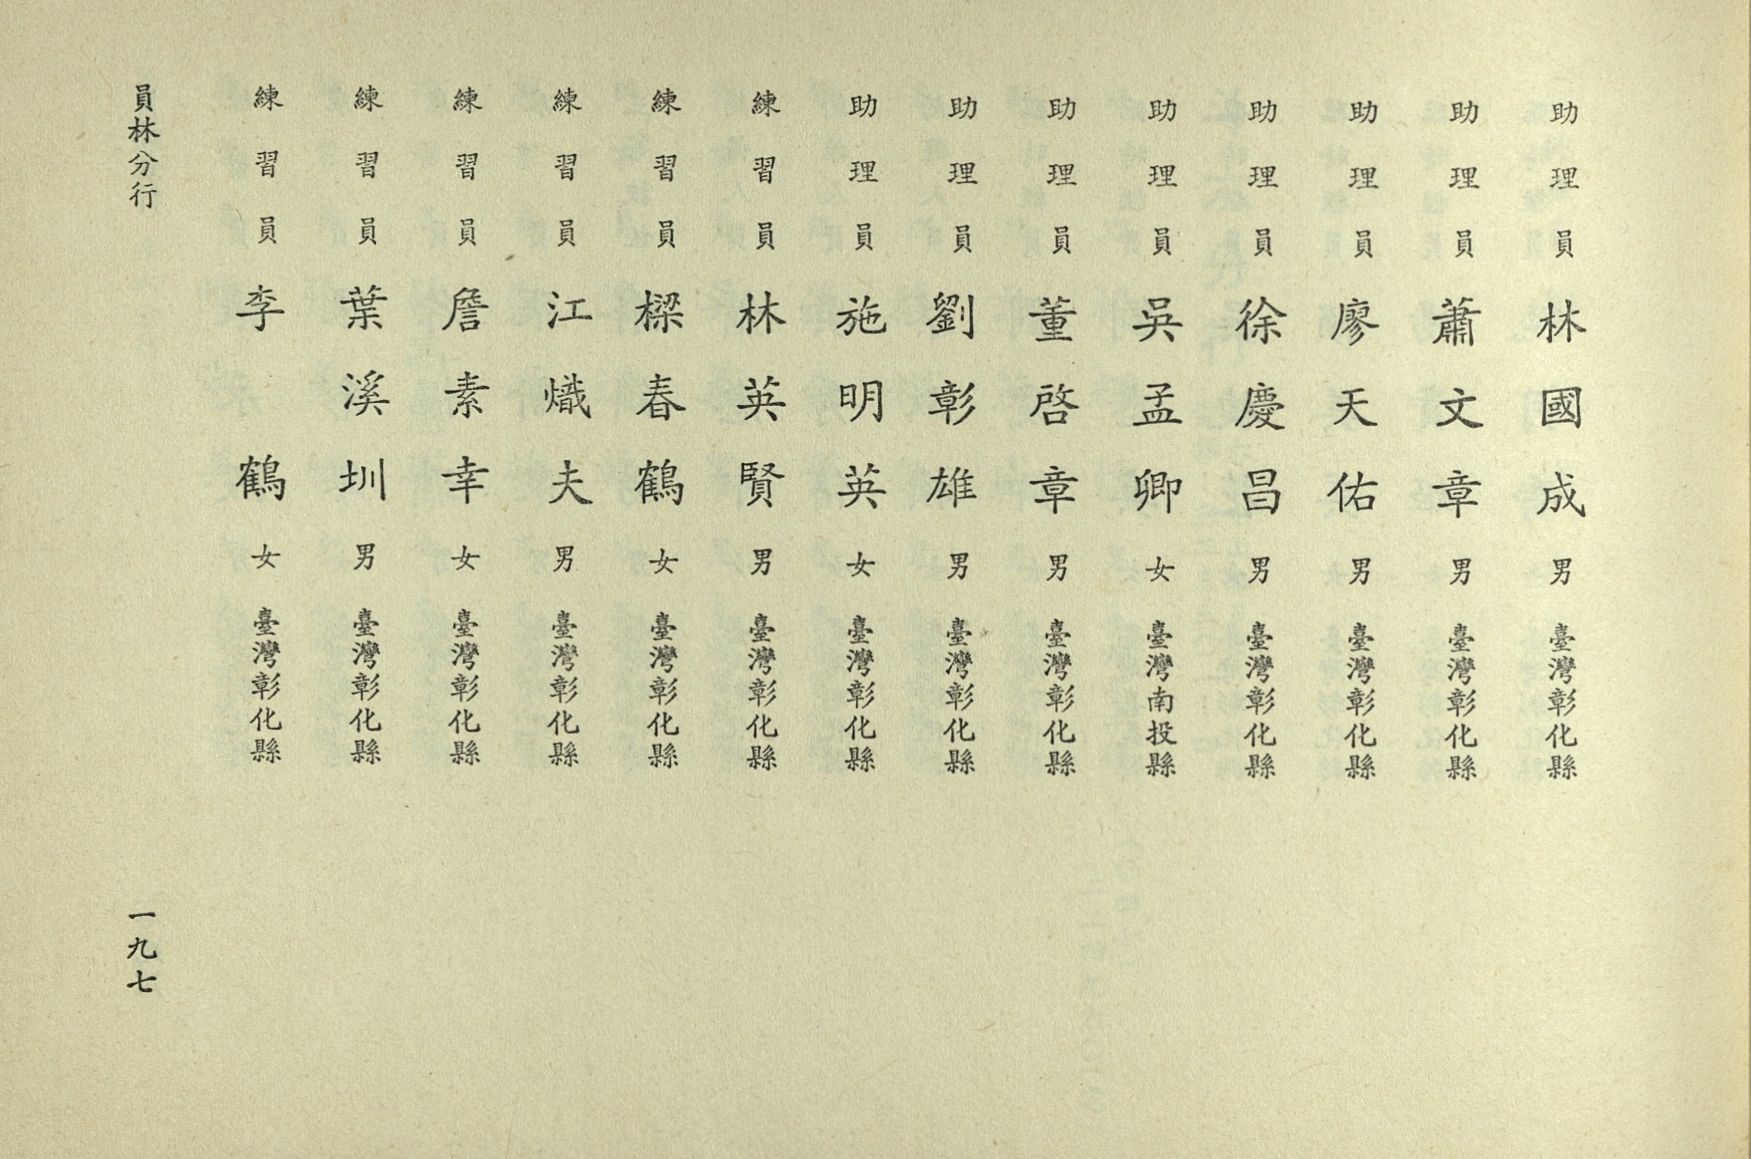 助理員林國成男臺灣彰化縣
助理員蕭文章男臺灣彰化縣
助理員廖天佑男臺灣彰化縣
助理員徐慶昌男臺灣彰化縣
助理員吳孟卿女臺灣南投縣
助理員董啓章男臺灣彰化縣
助理員劉彰雄男臺灣彰化縣
助理員施明英女臺灣彰化縣
練習員林英賢男臺灣彰化縣
練習員樑春鶴女臺灣彰化縣
練習員江熾夫男臺灣彰化縣
練習員詹素幸女臺灣彰化縣
練習員葉溪圳男臺灣彰化縣
練習員李鶴女臺灣彰化縣
員林分行
一九七